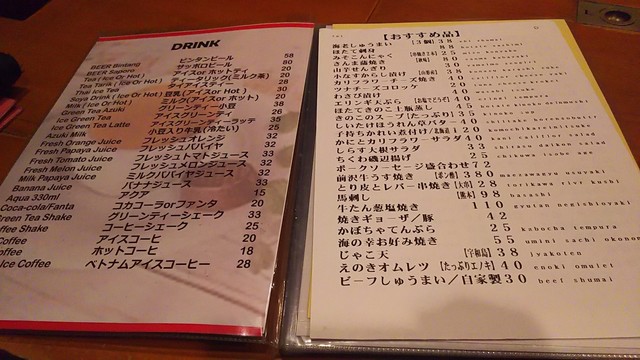 DRINK
BEER Bintang ビンタンビール 58
BEER Saporo サッポロビール 80
Tea (Ice Or Hot) アイスorホットティ 20
Tea Tarik (Ice Or Hot) ティータリック(ミルク茶) 20
Thai Ice Tea タイアイスティー 28
Soya Drink (Ice Or Hot) 豆乳(アイスor Hot) 30
Milk (Ice Or Hot) ミルク(アイスor ホット) 20
Green Tea Azuki グリーンティー小豆 38
Ice Green Tea アイスグリーンティ 26
Ice Green Tea Latte アイスグリーンティーラッテ 35
Azuki Milk 小豆入り牛乳(冷たい) 25
Fresh Orange Juice フレッシュオレンジ 32
Fresh Papaya Juice フレッシュパパイヤ 32
Fresh Tomato Juice フレッシュトマトジュース 33
Fresh Melon Juice フレッシュメロンジュース 32
Milk Papaya Juice ミルクパパイヤジュース 32
Banana Juice バナナジュース 33
Aqua 330ml アクア 15
Coca-cola/Fanta コカコーラorファンタ 20
reen Tea Shake グリーンティーシェーク 33
ffee Shake コーヒーシェーク 25
Coffee アイスコーヒ 20
offee ホットコーヒ 18
Ice Coffee ベトナムアイスコーヒー 28
【おすすめ品】
海老しゅうまい 【3個】 38
ほたて刺身 88
みそこんにゃく 25
さんま蒲焼き 80
山芋せんぎり 30
小なすからし漬け 38
カリフラワーチーズ焼き 40
ツナチーズコロッケ
わさび漬け
エリンギ天ぷら
ほたてきのこ土瓶蒸し 45
きのこのスープ【たっぷり】 35
しいたけほうれん草バター 40
子持ちかれい煮付け/北海道 120
かにとカリフラワーサラダ 40
しらす大根サラダ 33
ちくわ磯辺揚げ 25
ポークソーセージ盛合わせ 72
前沢牛うす焼き 【ポン酢】 380
とり皮とレバー串焼き【大串】 28
馬刺し 【熊本】 98 basashi
牛たん葱塩焼き 110
焼きギョーザ/豚 42
かぼちゃてんぷら 25 kabocha tempura
海の幸お好み焼き 55 umini sachi okono
じゃこ天 【宇和島】 38 jyakoten
えのきオムレツ 【たっぷりエノキ】 40 enoki omulet
ビーフしゅうまい/自家製 30 beef shumai